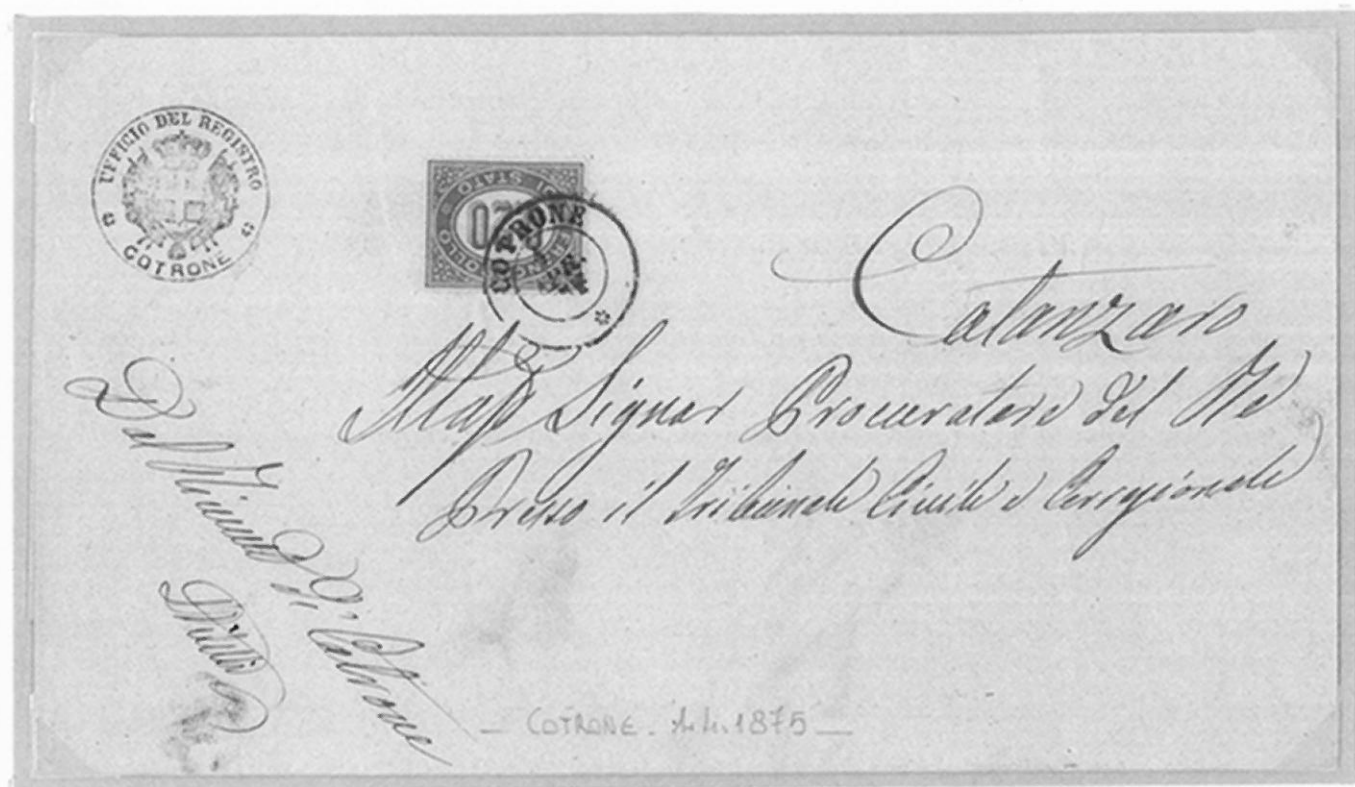 UFFICIO DEL REGISTRO
COTRONE
DI STATO
0,20
COTRONE
Catanzaro
Signor Procuratore del Re
Presso il Tribunale Civile e Correzionale
Dal
di Cotrone
COTRONE. 1875